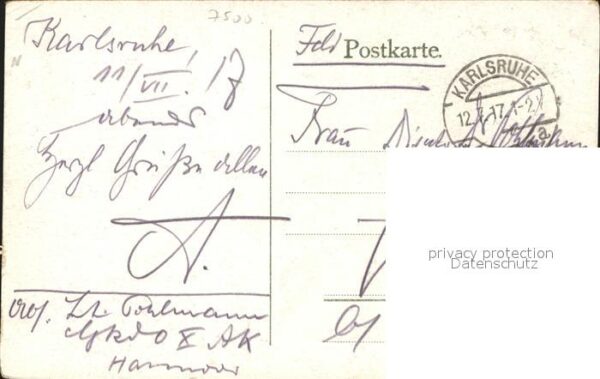 7500
Karlsruhe,
11/VII. 17
abends
Herzl Grüße allen
A.
Lt. Pohlmann
X AK
Hannover
Feld Postkarte.
KARLSRUHE
12.7.17. 1-2
a
Frau
privacy protection
Datenschutz